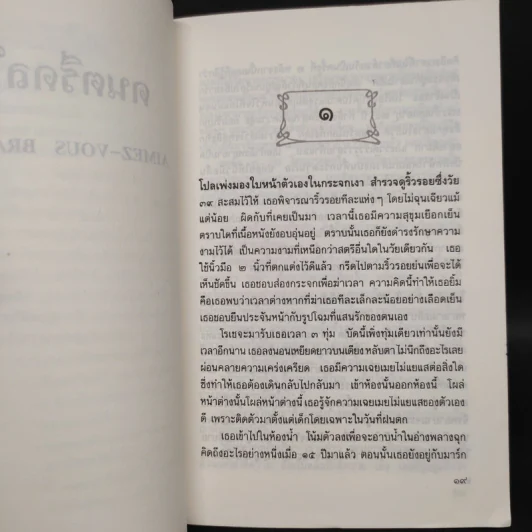 ดนตรีดล
AIMEZ-VOUS BRA
๑
โปลเพ่งมองใบหน้าตัวเองในกระจกเงา สำรวจดูริ้วรอยซึ่งวัย
๓๙ สะสมไว้ให้ เธอพิจารณาริ้วรอยทีละแห่งๆ โดยไม่ฉุนเฉียวแม้
แต่น้อย ผิดกับที่เคยเป็นมา เวลานี้เธอมีความสุขุมเยือกเย็น
ตราบใดที่เนื้อหนังยังอบอุ่นอยู่ ตราบนั้นเธอก็ยังดำรงรักษาความ
งามไว้ได้ เป็นความงามที่เหนือกว่าสตรีอื่นใดในวัยเดียวกัน เธอ
ใช้นิ้วมือ ๒ นิ้วที่ตกแต่งไว้ดีแล้ว กรีดไปตามริ้วรอยย่นเพื่อจะได้
เห็นชัดขึ้น เธอชอบส่องกระจกเพื่อฆ่าเวลา ความคิดนี้ทำให้เธอยิ้ม
คือเธอพบว่าเวลาต่างหากที่ฆ่าเธอทีละเล็กละน้อยอย่างเลือดเย็น
เธอชอบยืนประจันหน้ากับรูปโฉมที่แสนรักของตนเอง
โรเชจะมารับเธอเวลา ๓ ทุ่ม บัดนี้เพิ่งทุ่มเดียวเท่านั้นยังมี
เวลาอีกนาน เธอลงนอนเหยียดยาวบนเตียงหลับตา ไม่นึกถึงอะไรเลย
ผ่อนคลายความเคร่งเครียด เธอมีความเฉยเมยไม่แยแสต่อสิ่งใด
ซึ่งทำให้เธอต้องเดินกลับไปกลับมา เข้าห้องนั้นออกห้องนี้ โผล่
หน้าต่างนั้นโผล่หน้าต่างนี้ เธอรู้จักความเฉยเมยไม่แยแสของตัวเอง
ดี เพราะติดตัวมาตั้งแต่เด็กโดยเฉพาะในวันที่ฝนตก
เธอเข้าไปในห้องน้ำ โน้มตัวลงเพื่อจะอาบน้ำในอ่างพลางฉุก
คิดถึงอะไรอย่างหนึ่งเมื่อ ๑๕ ปีมาแล้ว ตอนนั้นเธอยังอยู่กับมาร์ก
๑๙